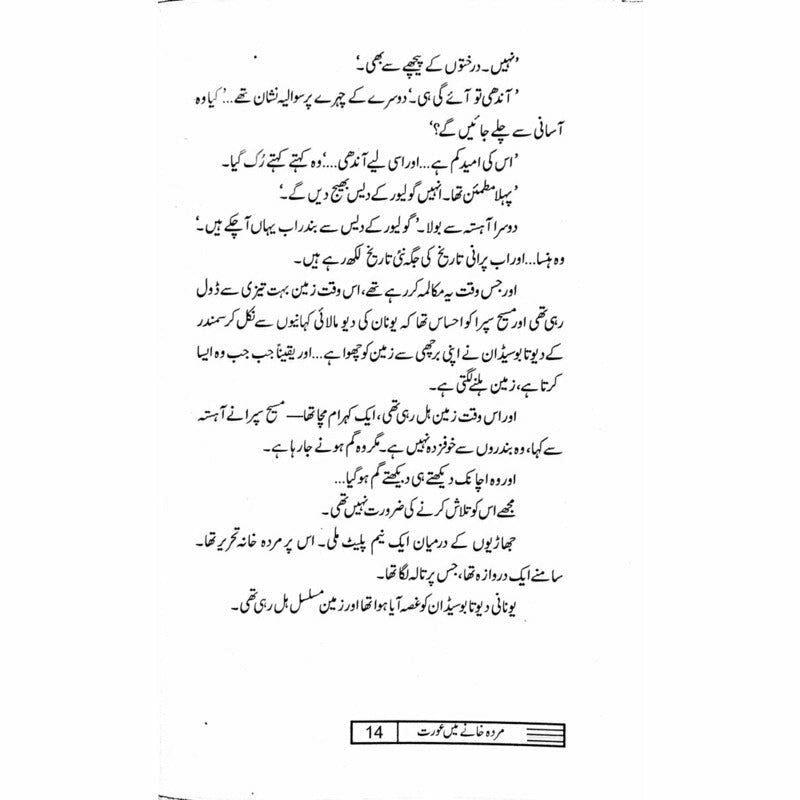 ’نہیں۔ درختوں کے پیچھے سے بھی۔‘
’آندھی تو آئے گی ہی۔‘ دوسرے کے چہرے پر سوالیہ نشان تھے...’ کیا وہ
آسانی سے چلے جائیں گے؟‘
’اس کی امید کم ہے...اور اسی لیے آندھی....‘ وہ کہتے کہتے رُک گیا۔
’پہلا مطمئن تھا۔ انہیں گولیور کے دیس بھیج دیں گے۔‘
دوسرا آہستہ سے بولا۔’ گولیور کے دیس سے بندر اب یہاں آ چکے ہیں۔‘
وہ ہنسا...اور اب پرانی تاریخ کی جگہ نئی تاریخ لکھ رہے ہیں۔
اور جس وقت یہ مکالمہ کر رہے تھے، اس وقت زمین بہت تیزی سے ڈول
رہی تھی اور مسیح سپرا کو احساس تھا کہ یونان کی دیو مالائی کہانیوں سے نکل کر سمندر
کے دیوتا بوسیڈان نے اپنی برچھی سے زمین کو چھوا ہے...اور یقیناً جب جب وہ ایسا
کرتا ہے، زمین ہلنے لگتی ہے۔
اور اس وقت زمین ہل رہی تھی، ایک کہرام مچا تھا— مسیح سپرا نے آہستہ
سے کہا، وہ بندروں سے خوفزدہ نہیں ہے۔ مگر وہ گم ہونے جا رہا ہے۔
اور وہ اچانک دیکھتے ہی دیکھتے گم ہو گیا...
مجھے اس کو تلاش کرنے کی ضرورت نہیں تھی۔
جھاڑیوں کے درمیان ایک نیم پلیٹ ملی۔ اس پر مردہ خانہ تحریر تھا۔
سامنے ایک دروازہ تھا، جس پر تالہ لگا تھا۔
یونانی دیوتا بوسیڈان کو غصہ آیا ہوا تھا اور زمین مسلسل ہل رہی تھی۔
مردہ خانے میں عورت 14